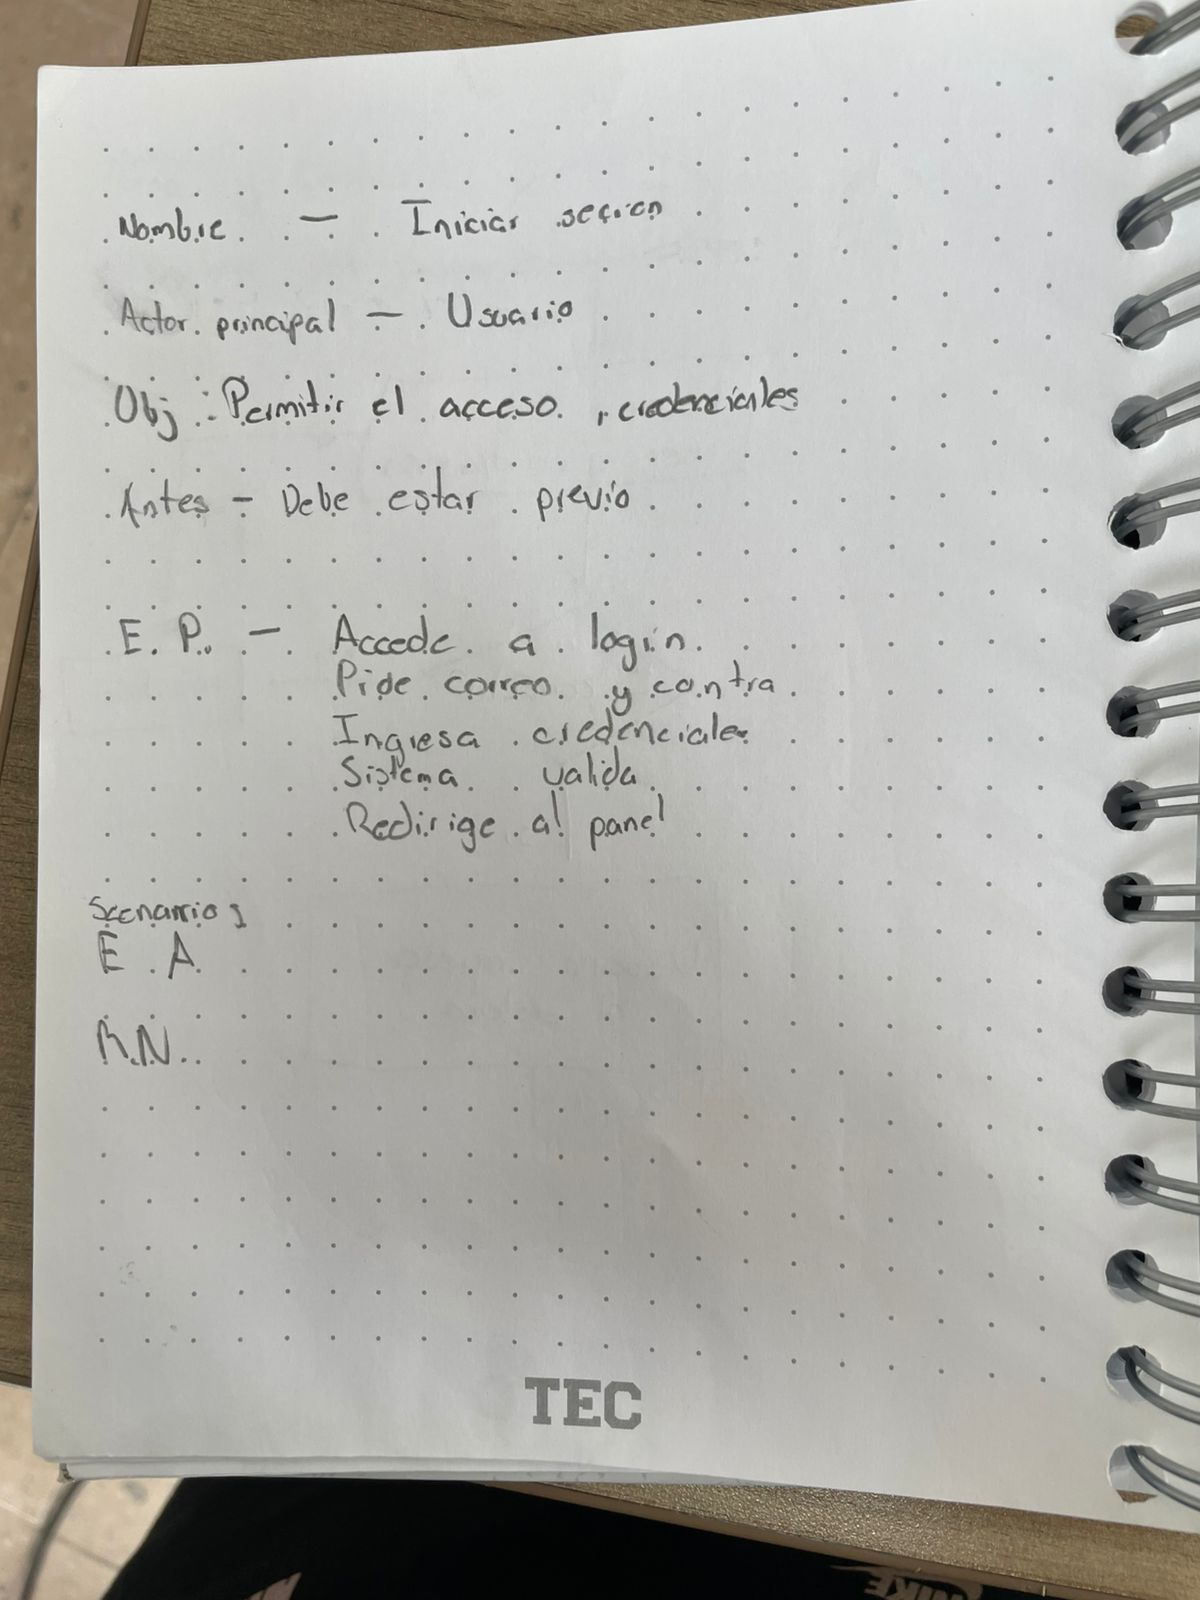 Nombre — Iniciar seción
Actor principal — Usuario
Obj : Permitir el acceso, credenciales
Antes - Debe estar previo
E. P. — Accede a login
Pide correo y contra
Ingresa credenciales
Sistema valida
Redirige al panel
Scenarrios
E A
R.N.
TEC